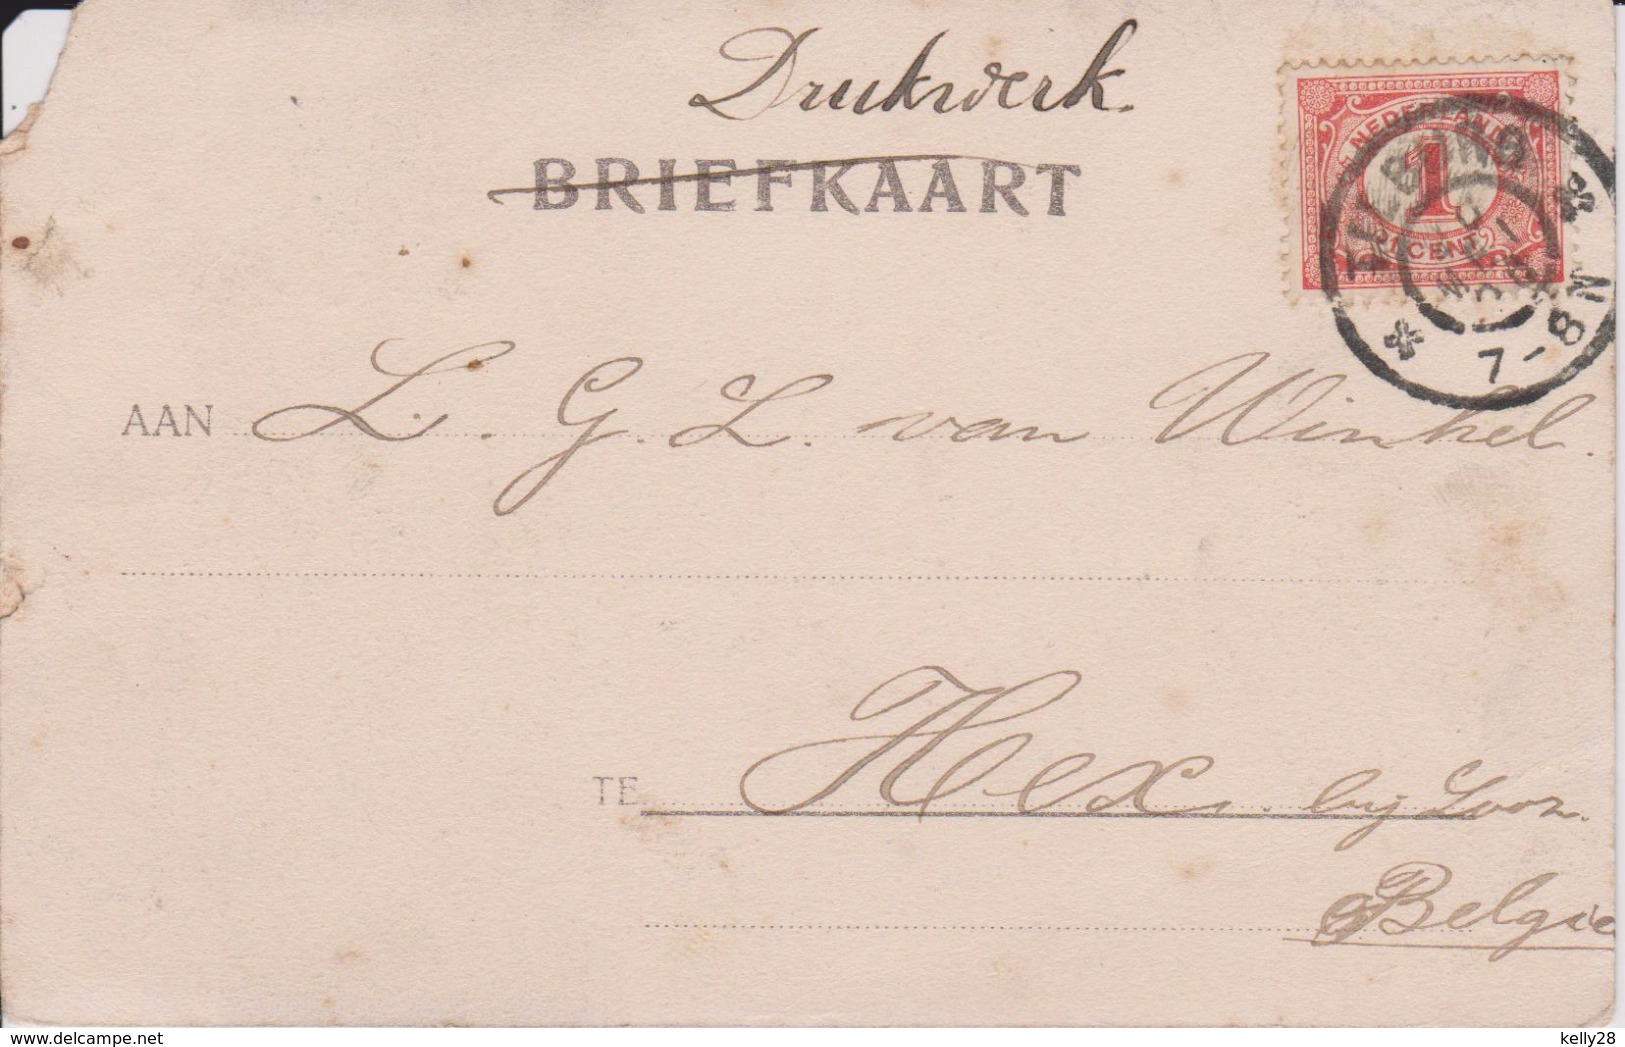 Drukwerk.
BRIEFKAART
NEDERLAND
1
CENT
TILBURG
7-8N
AAN L. G. L. van Winkel.
TE Hex, bij Loon.
Belgie
delcampe.net
kelly28